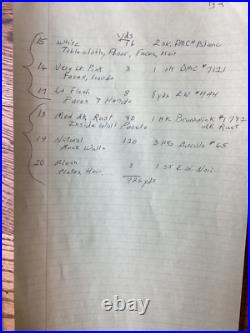 yds
15 White 76 2 sk. DMC# Blanc
Tablecloth, Floor, Faces, Hair
16 Very Lt. Pink 3 1 sk DMC # 7121
Faces, Hands
17 Lt Flesh 8 8 yds EW #444
Faces & Hands
18 Med dk Rust 30 1 HK Brunswick # 1782
Inside Wall Panels dk Rust
19 Natural 120 3 #65
Back Walls
20 Black 3 1 sk Noir
Hair
ebay